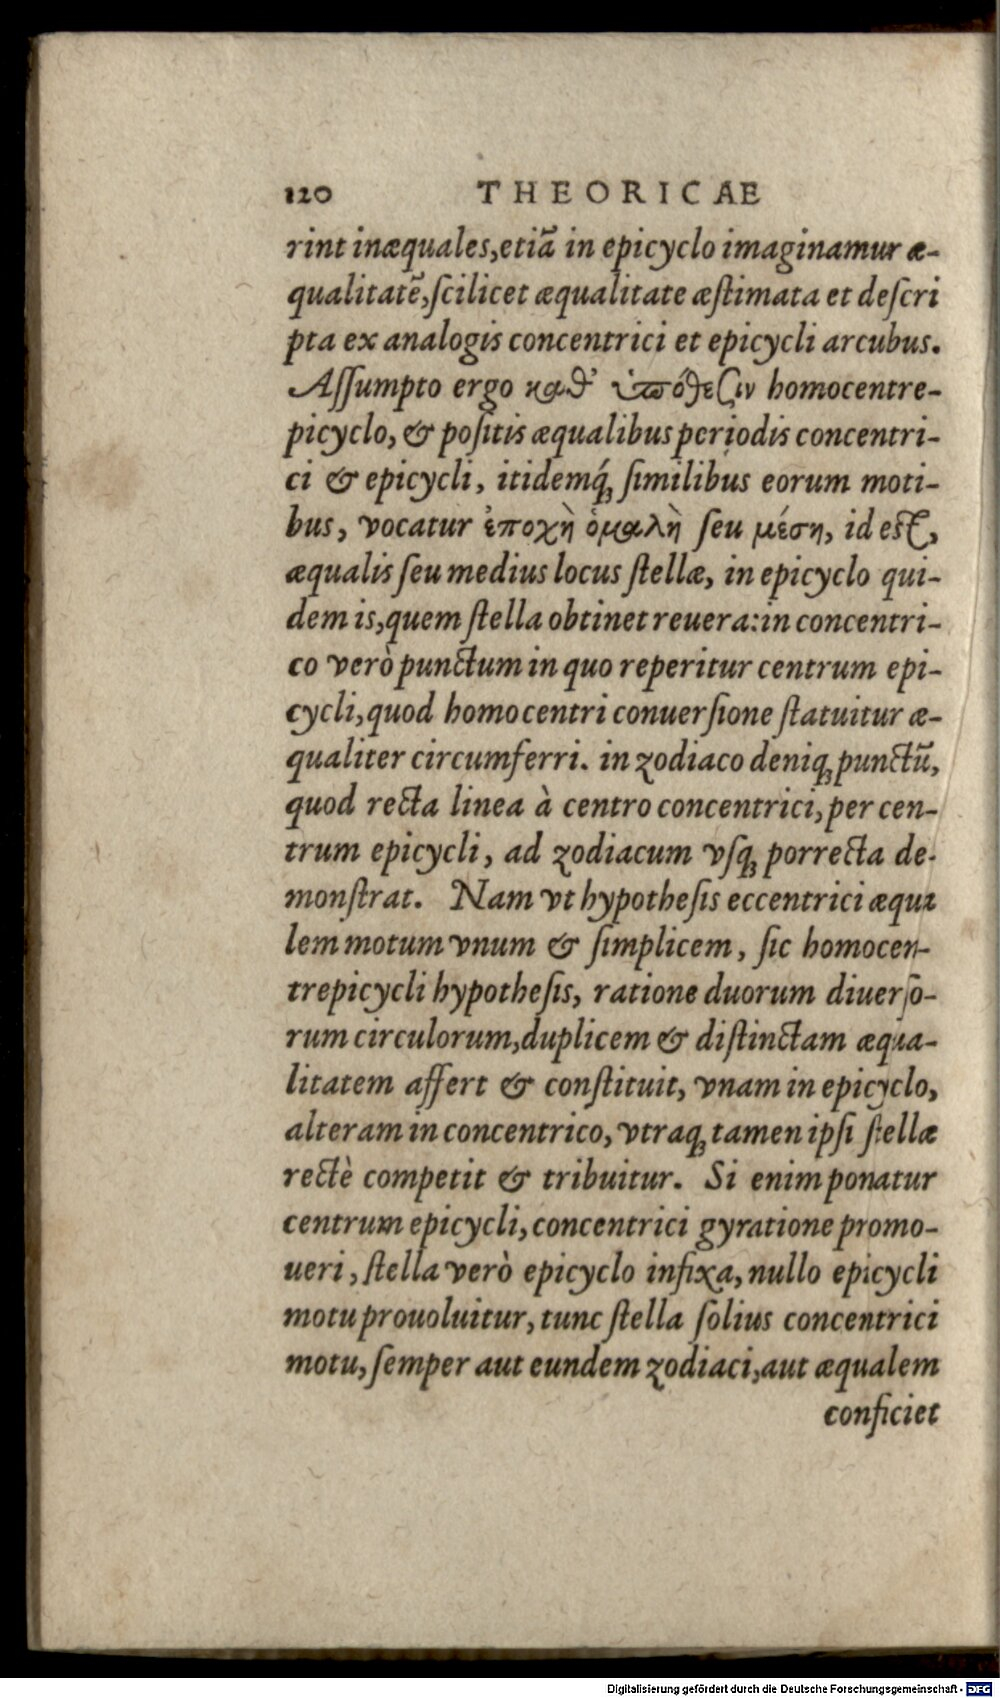 120 THEORICAE
rint inæquales,etiā in epicyclo imaginamur æ-
qualitatē,ſcilicet æqualitate æſtimata et deſcri
pta ex analogis concentrici et epicycli arcubus.
Aſſumpto ergo καθ’ ὑπόθεσιν homocentre-
picyclo, & poſitis æqualibus periodis concentri-
ci & epicycli, itidemq́ꝫ ſimilibus eorum moti-
bus, vocatur ἐποχὴ ὁμαλὴ ſeu μέση, id eſt,
æqualis ſeu medius locus ſtellæ, in epicyclo qui-
dem is,quem ſtella obtinet reuera:in concentri-
co verò punctum in quo reperitur centrum epi-
cycli,quod homocentri conuerſione ſtatuitur æ-
qualiter circumferri. in zodiaco deniqꝫ punctū,
quod recta linea à centro concentrici,per cen-
trum epicycli, ad zodiacum vſqꝫ porrecta de-
monſtrat. Nam vt hypotheſis eccentrici æqua
lem motum vnum & ſimplicem, ſic homocen-
trepicycli hypotheſis, ratione duorum diuerſo-
rum circulorum,duplicem & diſtinctam æqua-
litatem affert & conſtituit, vnam in epicyclo,
alteram in concentrico, vtraqꝫ tamen ipſi ſtellæ
rectè competit & tribuitur. Si enim ponatur
centrum epicycli,concentrici gyratione promo-
ueri, ſtella verò epicyclo infixa, nullo epicycli
motu prouoluitur, tunc ſtella ſolius concentrici
motu, ſemper aut eundem zodiaci,aut æqualem
conficiet
Digitalisierung gefördert durch die Deutsche Forschungsgemeinschaft - DFG